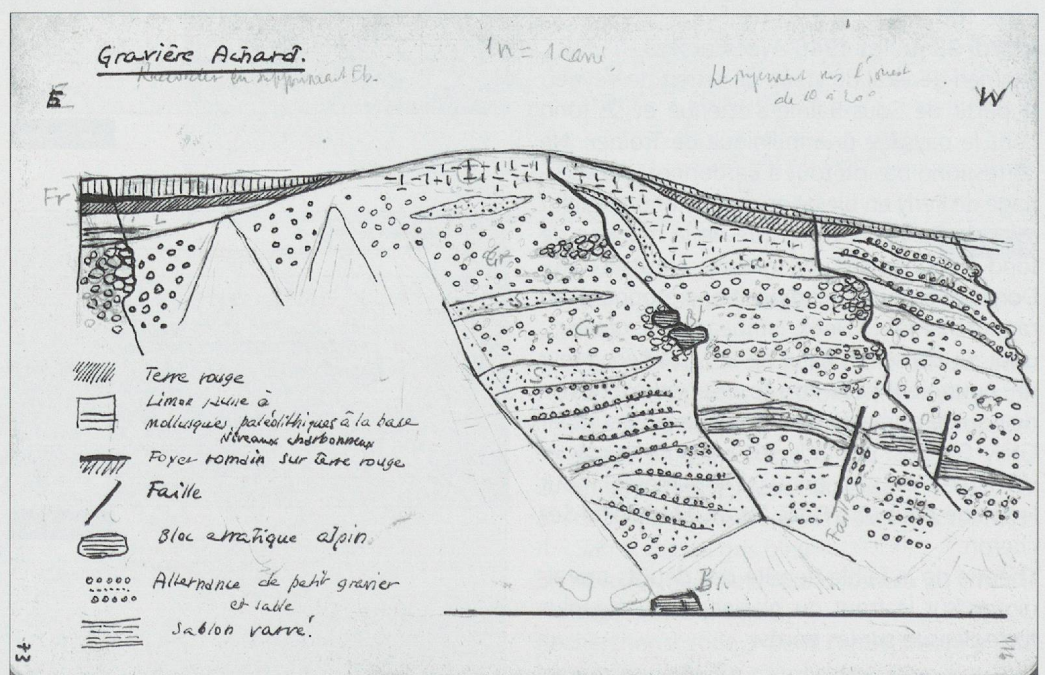 Gravière Achard.
1n = 1cm.
Raccorder en supprimant Eb.
vers l'ouest
de 10 à 20°
E
W
Fr
L
Gr
S
Gr
Bl
S
Faille
Terre rouge
Limon jaune à
mollusques, paléolithiques à la base
niveaux charbonneux
Foyer romain sur terre rouge
Faille
Bloc erratique alpin
Alternance de petit gravier
et sable
Sablon varvé.
Bl